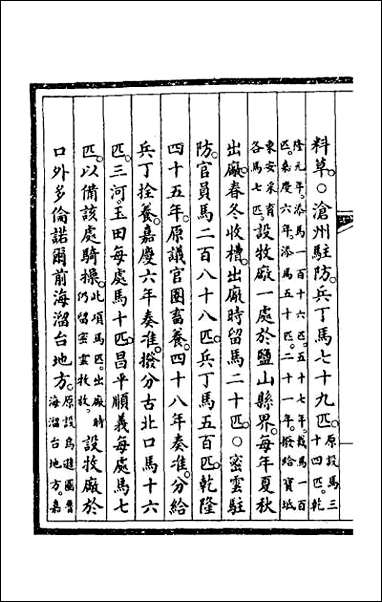 料草。○滄州駐防。兵丁馬七十九匹。原設馬三十四匹。乾
隆元年。添馬一百十六匹。五十七年。裁馬一百匹。嘉慶六年。添馬五十匹。二十一年。撥給寶坻
東安采育各馬七匹。設牧廠一處於鹽山縣界。每年夏秋
出廠。春冬收槽。出廠時留馬二十匹。○密雲駐
防。官員馬二百八十八匹。兵丁馬五百匹。乾隆
四十五年。原議官圈畜養。四十八年奏准。分給
兵丁拴養。嘉慶六年奏准。撥分古北口馬十六
匹。三河。玉田每處馬十匹。昌平順義每處馬七
匹。以備該處騎操。此項馬匹。出廠時仍留密雲牧放。設牧廠於
口外多倫諾爾前海溜台地方。原設烏遊圖魯海溜台地方。嘉